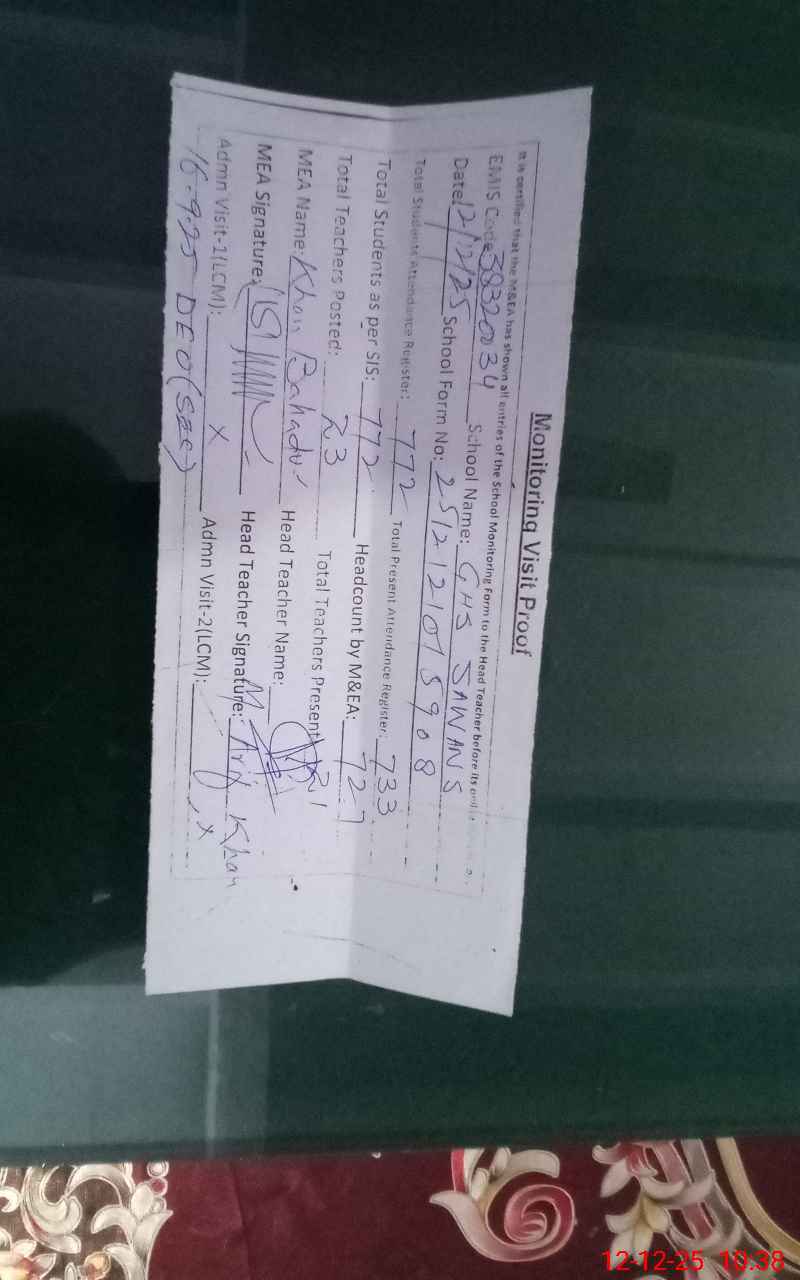 Monitoring Visit Proof
It is certified that the M&EA has shown all entries of the School Monitoring Form to the Head Teacher before its
EMIS Code 38320034 School Name: GHS JAWANS
Date: 12/12/25 School Form No: 2512121015908
Total Students Attendance Register: 772 Total Present Attendance Register: 733
Total Students as per SIS: 772 Headcount by M&EA: 727
Total Teachers Posted: 23 Total Teachers Present: 21
MEA Name: Khan Bahadur Head Teacher Name:
MEA Signature: Head Teacher Signature: M Arif Khan
Admn Visit-1(LCM): X Admn Visit-2(LCM): X
16-9-25 DEO (SES)
12-12-25 10:38